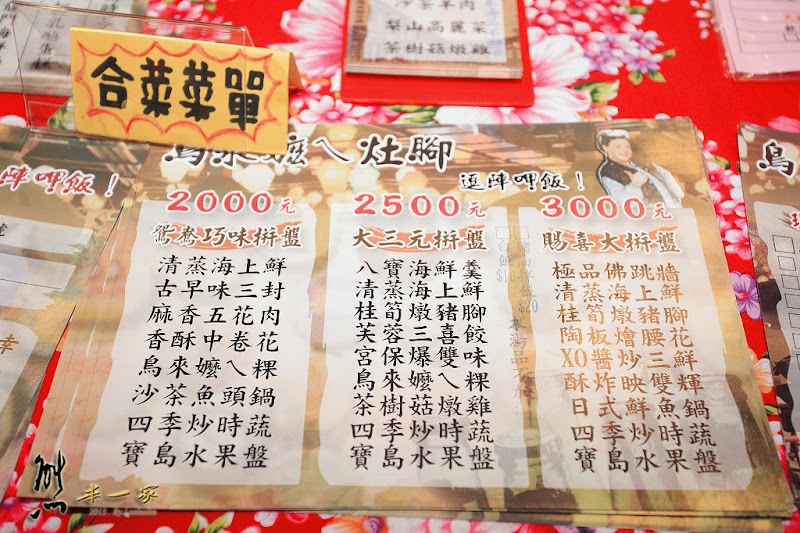 沙茶羊肉
梨山高麗菜
茶樹菇燉雞
合菜菜單
陣呷飯！
鳥來嬤ㄟ灶腳
逗陣呷飯！
2000元
鴛鴦巧味拼盤
清蒸海上鮮
古早味三封
麻香五花肉
香酥中卷花
鳥來嬤ㄟ粿
沙茶魚頭鍋
四季炒時蔬
寶島水果盤
2500元
大三元拼盤
八寶海鮮羹
清蒸海上鮮
桂筍燉豬腳
芙蓉三鮮餃
宮保爆雙味
鳥來嬤ㄟ粿
茶樹菇燉雞
四季炒時蔬
寶島水果盤
3000元
賜喜大拼盤
極品佛跳牆
清蒸海上鮮
桂筍燉豬腳
陶板燴腰花
XO醬炒三鮮
酥炸映雙輝
日式鮮魚鍋
四季炒時蔬
寶島水果盤
鳥
半一家